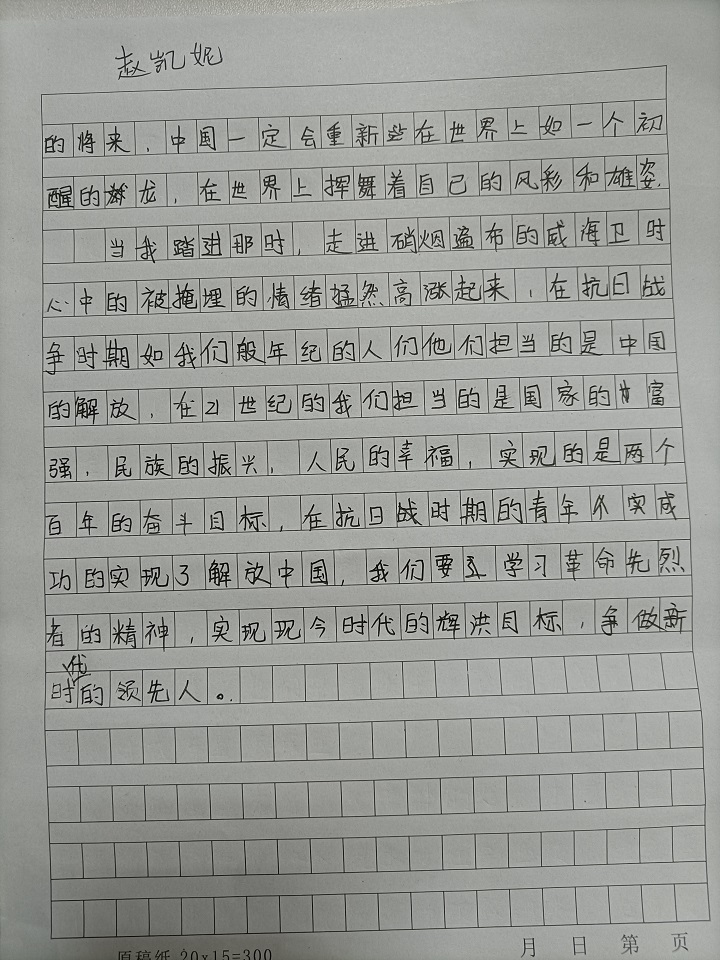 赵凯妮
的将来，中国一定会重新些在世界上如一个初
醒的龙，在世界上挥舞着自己的风彩和雄姿.
当我踏进那时，走进硝烟遍布的威海卫时
心中的被掩埋的情绪猛然高涨起来，在抗日战
争时期如我们般年纪的人们他们担当的是中国
的解放，在21世纪的我们担当的是国家的富
强，民族的振兴，人民的幸福，实现的是两个
百年的奋斗目标，在抗日战时期的青年实成
功的实现了解放中国，我们要学习革命先烈
者的精神，实现现今时代的辉洪目标，争做新
时代的领先人。
原稿纸 20×15=300
月 日 第 页